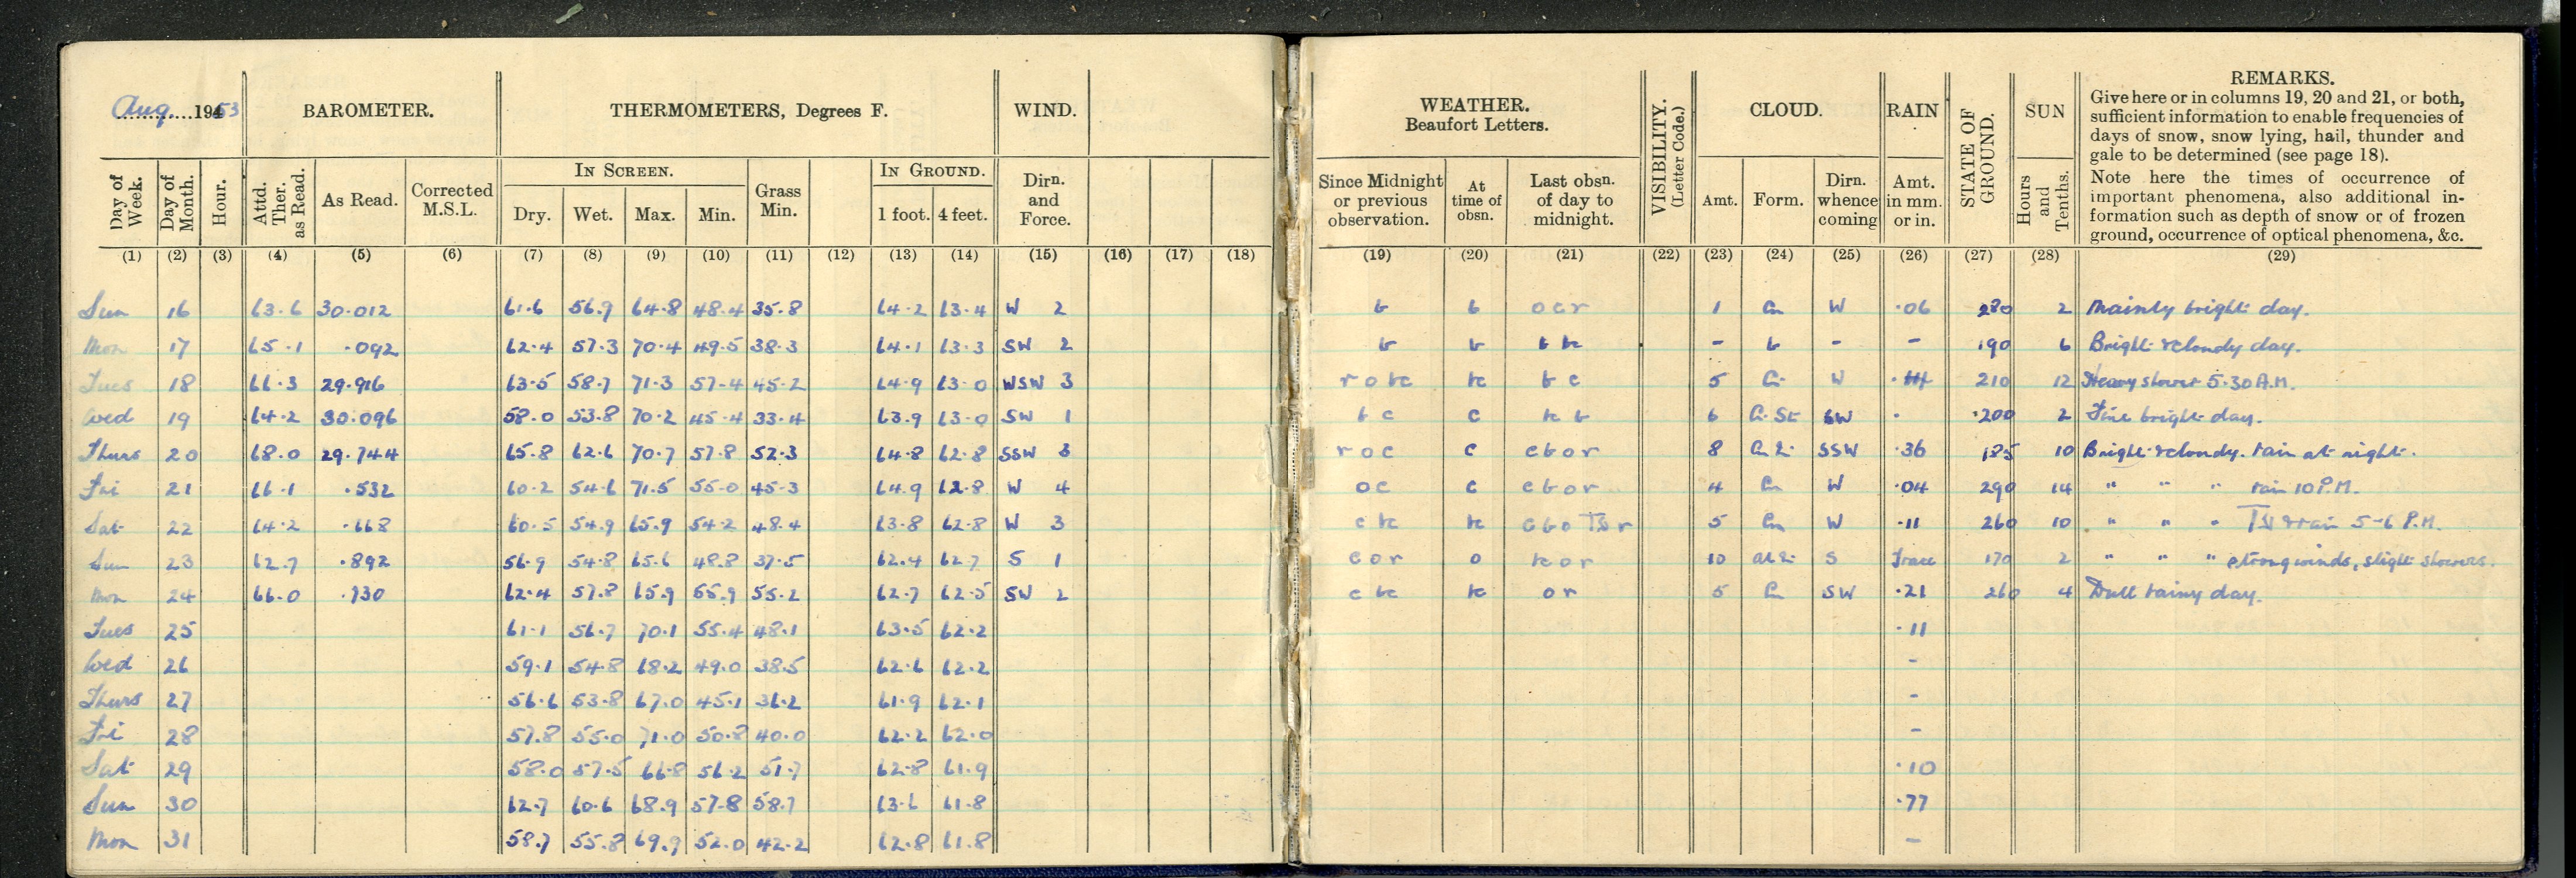 Aug. 1953
BAROMETER. THERMOMETERS, Degrees F. WIND. WEATHER. Beaufort Letters. VISIBILITY. (Letter Code.) CLOUD. RAIN STATE OF GROUND. SUN REMARKS.
Give here or in columns 19, 20 and 21, or both,
sufficient information to enable frequencies of
days of snow, snow lying, hail, thunder and
gale to be determined (see page 18).
Note here the times of occurrence of
important phenomena, also additional in-
formation such as depth of snow or of frozen
ground, occurrence of optical phenomena, &c.
Day of Week. Day of Month. Hour. Attd. Ther. as Read. As Read. Corrected M.S.L. IN SCREEN. Dry. Wet. Max. Min. Grass Min. IN GROUND. 1 foot. 4 feet. Dirn. and Force. Since Midnight or previous observation. At time of obsn. Last obsn. of day to midnight. Amt. Form. Dirn. whence coming Amt. in mm. or in. Hours and Tenths.
(1) (2) (3) (4) (5) (6) (7) (8) (9) (10) (11) (12) (13) (14) (15) (16) (17) (18) (19) (20) (21) (22) (23) (24) (25) (26) (27) (28) (29)
Sun 16 63.6 30.012 61.6 56.9 64.8 48.4 35.8 64.2 63.4 W 2 b b ocr 1 Cu W .06 280 2 Mainly bright day.
Mon 17 65.1 .092 62.4 57.3 70.4 49.5 38.3 64.1 63.3 SW 2 b b b bc - b - - 190 6 Bright & cloudy day.
Tues 18 66.3 29.916 63.5 58.7 71.3 57.4 45.2 64.9 63.0 WSW 3 r o bc bc b c 5 Ci W 210 12 Heavy shower 5.30 A.M.
Wed 19 64.2 30.096 58.0 53.8 70.2 45.4 33.4 63.9 63.0 SW 1 b c c bc b 6 Ci.St SW . 200 2 Fine bright day.
Thurs 20 68.0 29.744 65.8 62.6 70.7 57.8 52.3 64.8 62.8 SSW 3 r o c c c b o r 8 SSW .36 185 10 Bright & cloudy. rain at night.
Fri 21 66.1 .532 60.2 54.6 71.5 55.0 45.3 64.9 62.8 W 4 o c c c b o r 4 Cu W .04 290 14 " " " rain 10 P.M.
Sat 22 64.2 .668 60.5 54.9 65.9 54.2 48.4 63.8 62.8 W 3 c bc bc c b o r 5 Cu W .11 260 10 " " " & rain 5-6 P.M.
Sun 23 62.7 .892 56.9 54.8 65.6 48.8 37.5 62.4 62.7 S 1 c o r o bc o r 10 S Trace 170 2 " " " strong winds, slight showers.
Mon 24 66.0 .730 62.4 57.8 65.9 55.9 55.2 62.7 62.5 SW 2 c bc bc o r 5 Cu SW .21 260 4 Dull rainy day.
Tues 25 61.1 56.7 70.1 55.4 48.1 63.5 62.2 .11
Wed 26 59.1 54.8 68.2 49.0 38.5 62.6 62.2 -
Thurs 27 56.6 53.8 67.0 45.1 36.2 61.9 62.1 -
Fri 28 57.8 55.0 71.0 50.8 40.0 62.2 62.0 -
Sat 29 58.0 57.5 66.8 56.2 51.7 62.8 61.9 .10
Sun 30 62.7 60.6 68.9 57.8 58.7 63.6 61.8 .77
Mon 31 58.7 55.8 69.9 52.0 42.2 62.8 61.8 -